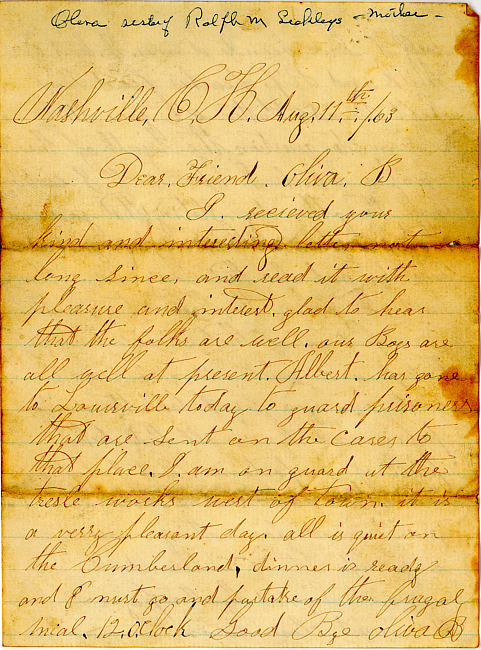 Olive sister of Ralph M Sickleys - Mother -
Nashville, C.H. Aug. 11th /63
Dear, Friend. Oliva. B
I. recieved your
kind and interesting letter not
long since, and read it with
pleasure and interest. glad to hear
that the folks are well. our Boys are
all well at present. Albert. has gone
to Louisville today to guard prisoners
that are sent on the Cares to
that place. I. am on guard at the
tresle works west of town. it is
a verry pleasant day. all is quiet on
the Cumberland, dinner is ready
and I must go, and partake of the frugal
meal. 12, Oclock Good Bye Oliva B